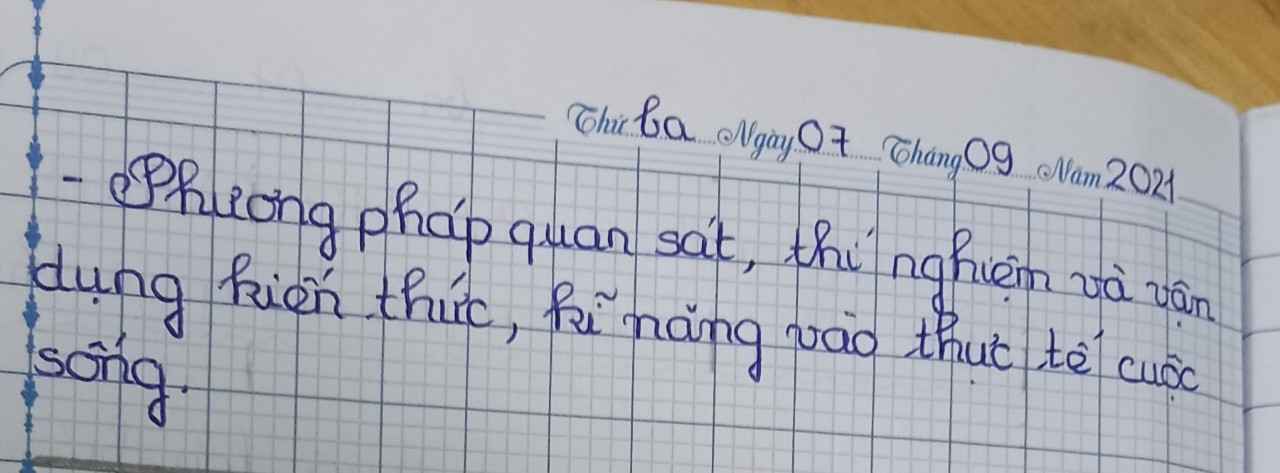 Thứ ba Ngày 07 Tháng 09 Năm 2021
- Phương pháp quan sát, thí nghiệm và vận
dụng kiến thức, kĩ năng vào thực tế cuộc
sống.